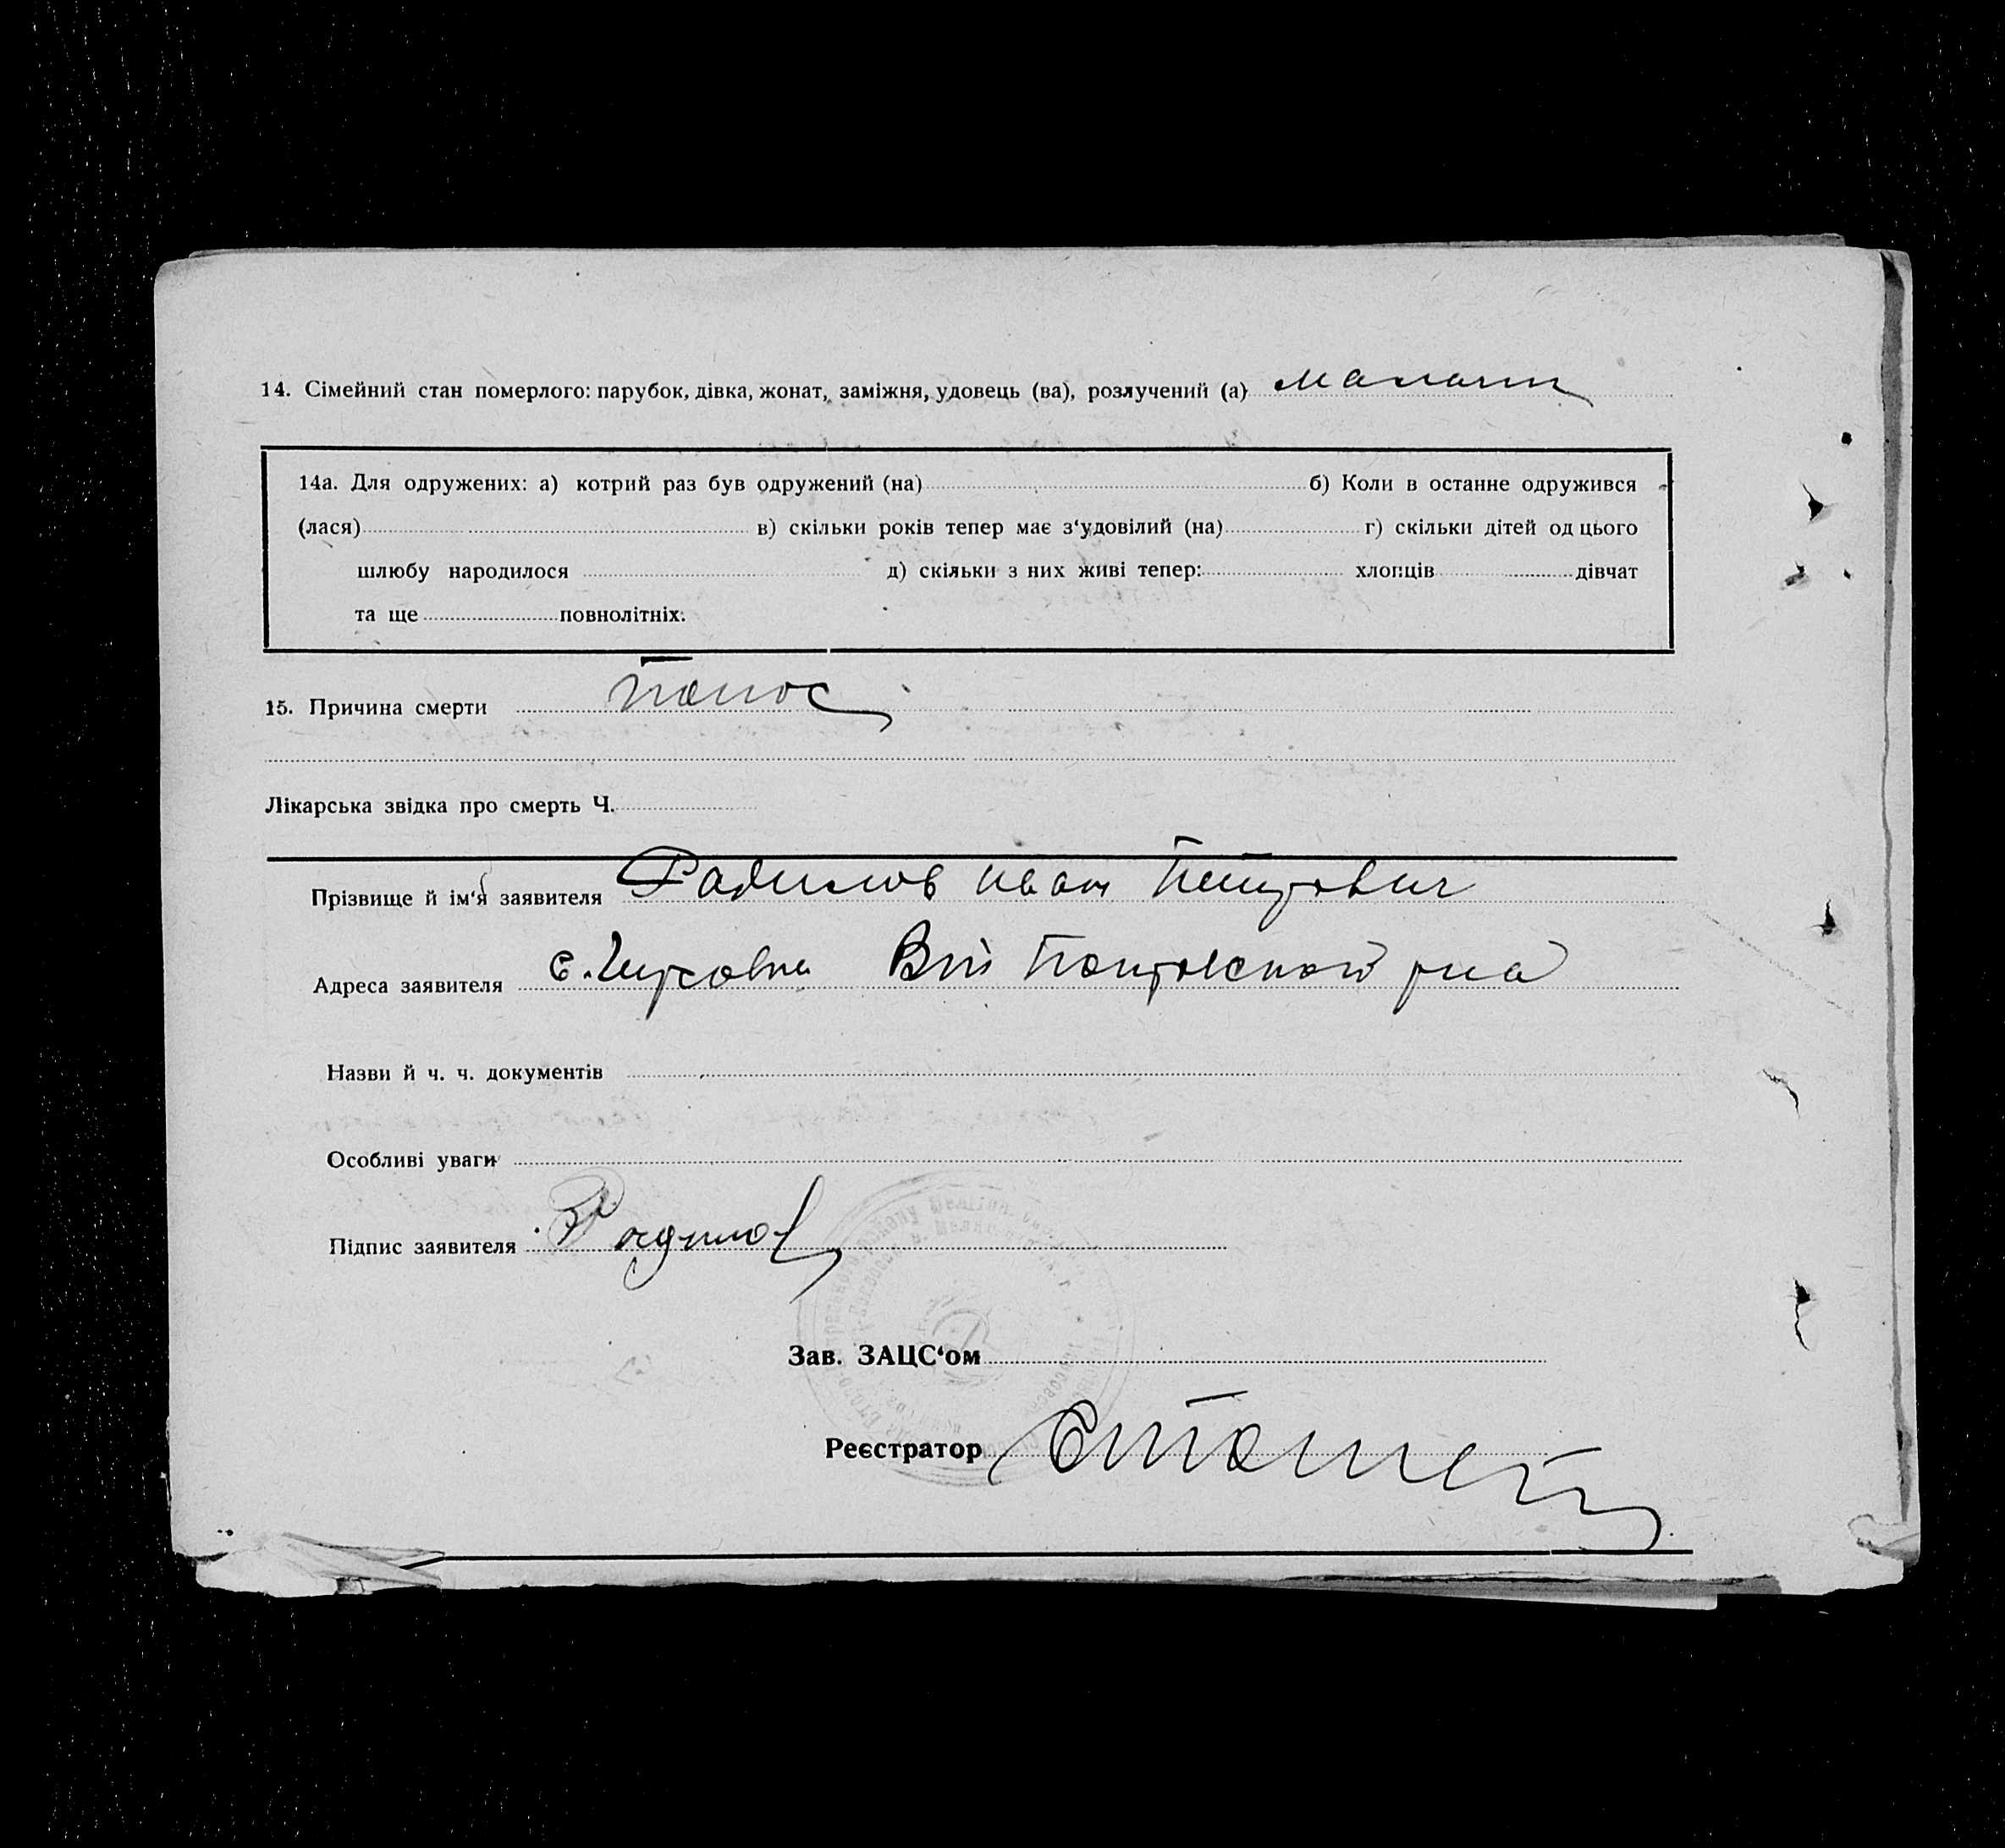 14. Сімейний стан померлого: парубок, дівка, жонат, заміжня, удовець (ва), розлучений (а)
14а. Для одружених: а) котрий раз був одружений (на) б) Коли в останне одружився
(лася) в) скільки років тепер має з‘удовілий (на) г) скільки дітей од цього
шлюбу народилося д) скільки з них живі тепер: хлопців дівчат
та ще повнолітніх.
15. Причина смерти Понос
Лікарська звідка про смерть Ч.
Прізвище й ім‘я заявителя Радилов Иван Петрович
Адреса заявителя с.
Назви й ч. ч. документів
Особливі уваги
Підпис заявителя
Зав. ЗАЦС‘ом
Реєстратор